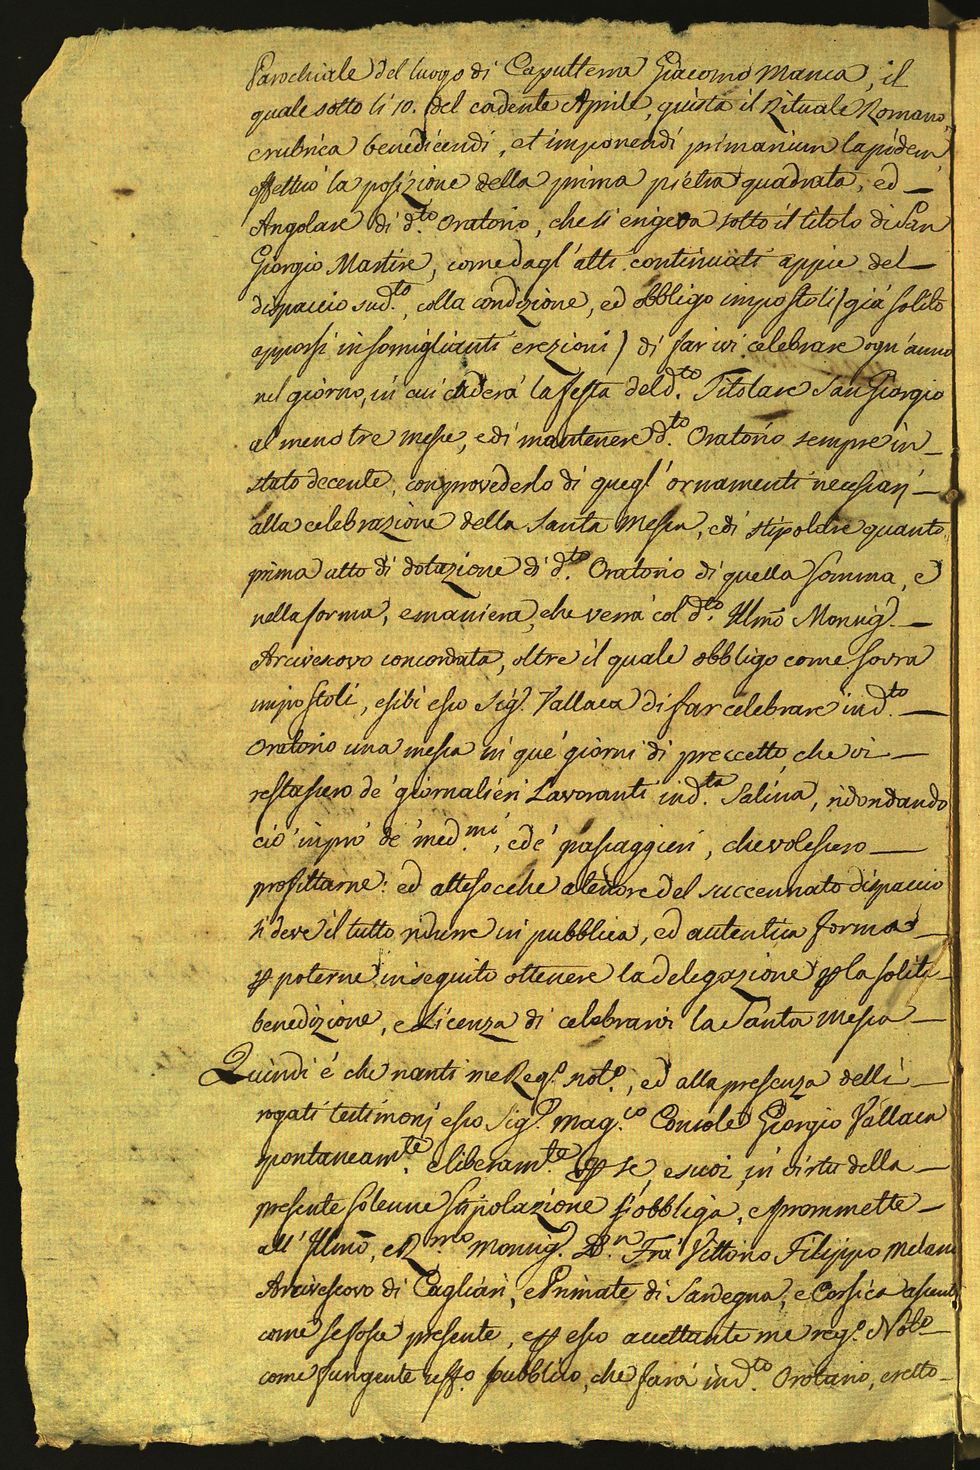 Parochiale del luogo di Caputterra Giacomo Manca, il
quale sotto li 10. del cadente Aprile, giusta il Rituale Romano
e rubrica benedicendi, et imponendi primarium lapidem
effettuò la posizione della prima pietra quadrata, ed
Angolare di d.to Oratorio, che si erigeva sotto il titolo di San
Giorgio Martire, come dagl'atti continuati appiè del
dispaccio sud.to, colla condizione, ed obbligo impostoli (già solito
apporsi in somiglianti erezioni) di far ivi celebrare ogn'anno
nel giorno, in cui caderà la festa del d.to Titolare San Giorgio
almeno tre messe, e di mantenere d.to Oratorio sempre in
stato decente, con provederlo di quegl'ornamenti necessarj
alla celebrazione della Santa Messa, e di stipolare quanto
prima atto di dotazione di d.to Oratorio di quella somma, e
nella forma, e maniera, che verrà col d.to Illmo Monsig.r
Arcivescovo concordata, oltre il quale obbligo come sovra
impostoli, esibì esso Sig.r Vallaca di far celebrare in d.to
Oratorio una messa in que' giorni di preccetto, che vi
restassero de' giornalieri Lavoranti in d.ta Salina, ridondando
ciò in prò de' med.mi, e de' passaggieri, che volessero
profittarne: ed attesocche a tenore del succennato dispaccio
si deve il tutto ridurre in pubblica, ed autentica forma
per poterne in seguito ottenere la delegazione per la solita
benedizione, e Licenza di celebrarvi la Santa Messa
Quindi è che nanti me Reg.o not.o, ed alla presenza delli
rogati testimonj esso Sig.r Mag.co Console Giorgio Vallaca
spontaneam.te e liberam.te per se, e suoi in virtù della
presente solenne stipolazione si obbliga, e promette
all' Illmo, e R.mo Monsig.r D.n Frà Vittorio Filippo Melano
Arcivescovo di Cagliari, e Primate di Sardegna, e Corsica assente
come se fosse presente, e per esso accettante me reg.o Not.o
come fungente uff.o pubblico, che farà in d.to Orotario, eretto